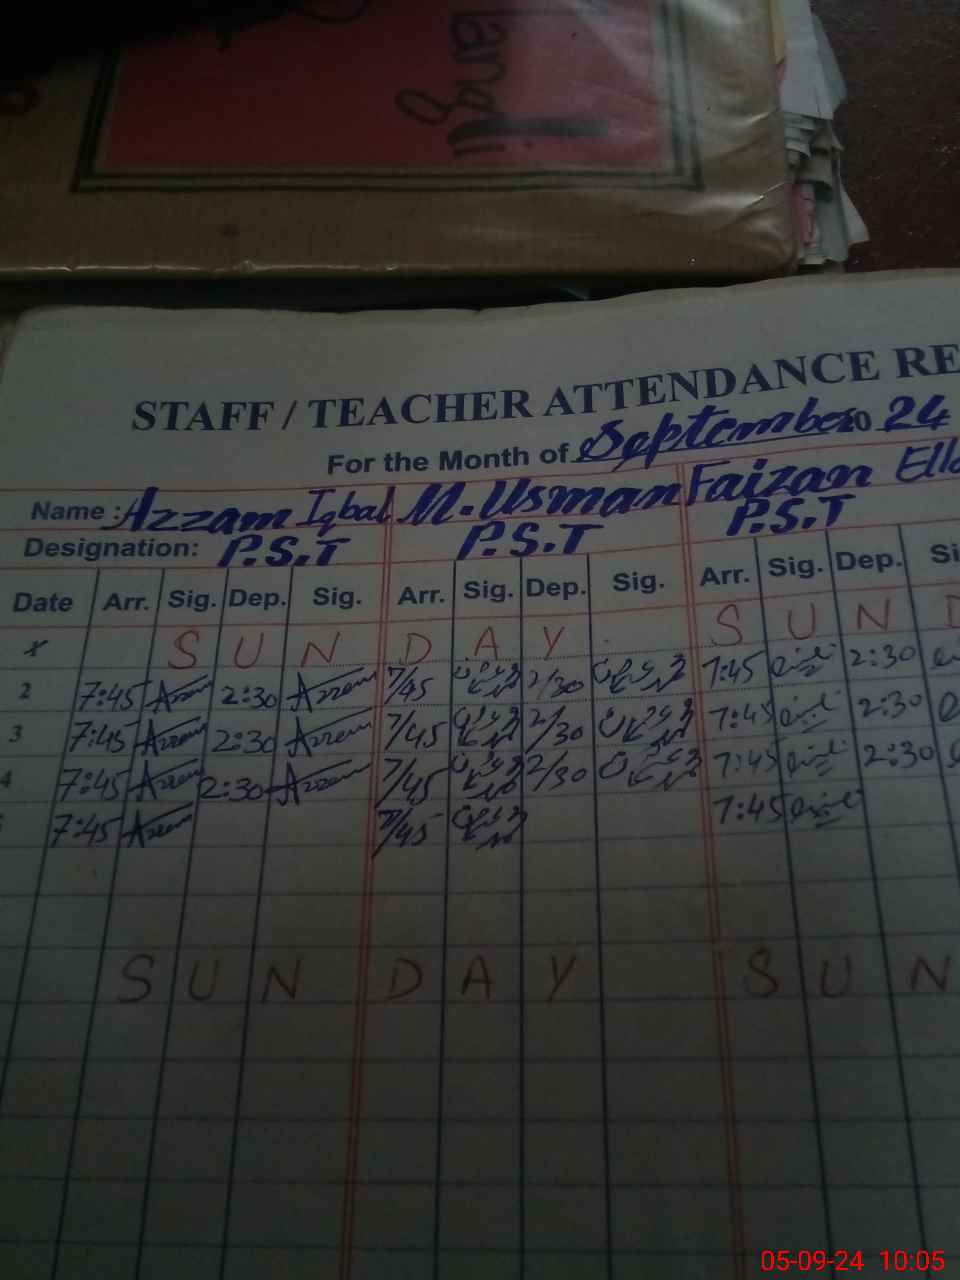 angli
STAFF / TEACHER ATTENDANCE RE
For the Month of September 20 24
Name : Azzam Iqbal M. Usman Faizan Ell
Designation: P.S.T P.S.T P.S.T
Date Arr. Sig. Dep. Sig. Arr. Sig. Dep. Sig. Arr. Sig. Dep. Si
S U N D A Y S U N D
2 7:45 Azzam 2:30 Azzam 7/45 2/30 7:45 2:30
3 7:45 Azzam 2:30 Azzam 7/45 2/30 7:45 2:30
4 7:45 Azzam 2:30 Azzam 7/45 2/30 7:45 2:30
7:45 Azzam 7/45 7:45
S U N D A Y S U N
05-09-24 10:05